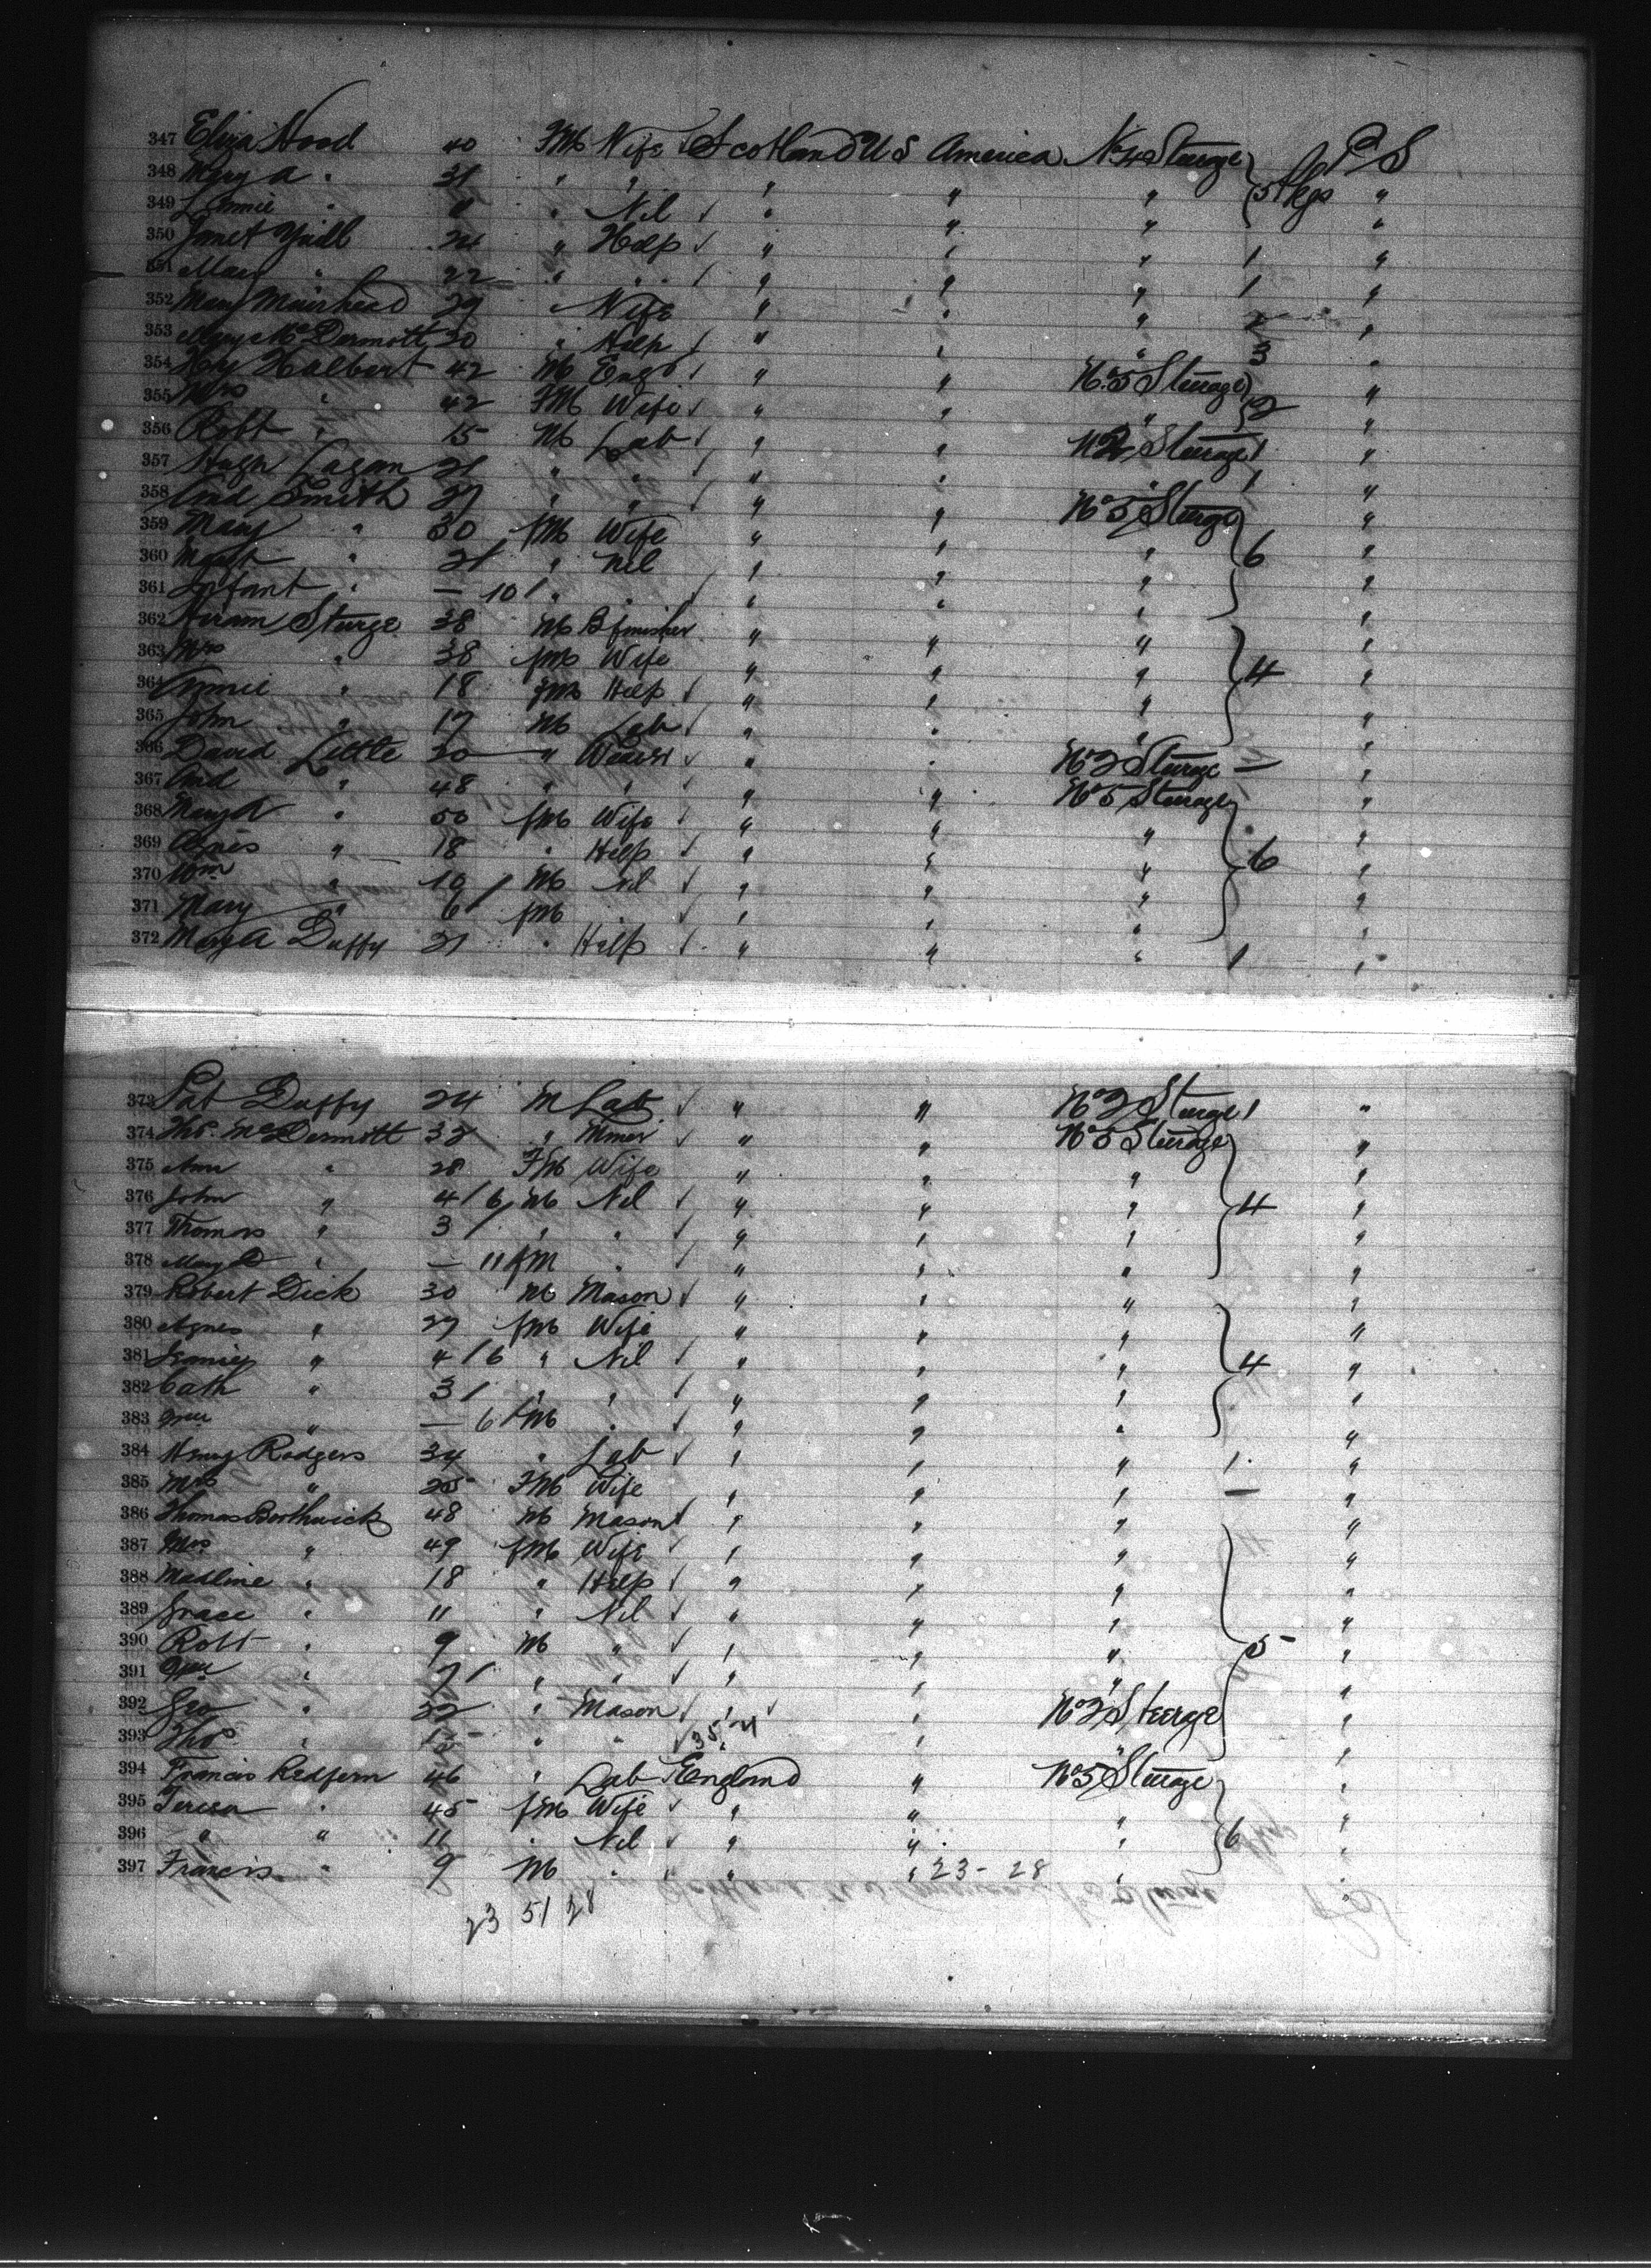 347 Eliza Hood 40 FM Wife Scotland U S America No 4 Steerage P S
348 Mary A " 31 " " " " " 5 Pkgs "
349 " " Nil " " " "
350 Janet 24 " Help " " " 1 "
351 Mary " 22 " " " " " 1 "
352 Mary Muirhead 29 " Wife " " " "
353 McDermott 20 " Help " " " 3 "
354 Hy Halbert 42 M Engr " " No 5 Steerage "
355 Mrs " 42 FM Wife " " " 2 "
356 Robt " 15 M Lab " " No 2 Steerage 1 "
357 Hugh Logan 21 " " " " " 1 "
358 And Smith 27 " " " " No 5 Steerage "
359 Mary " 30 fM Wife " " " 6 "
360 Margt " 2/ " Nil " " " "
361 Infant " — 10/ " " " " " "
362 Hiram Sturge 38 M B finisher " " " "
363 Mrs " 38 fM Wife " " " 4 "
364 Annie " 18 FM Help " " " "
365 John " 17 M Lab " " " "
366 David Little 20 " Weaver " " No 2 Steerage — "
367 And " 48 " " " " No 5 Steerage "
368 Mary A " 50 fM Wife " " " "
369 Agnes " 18 " Help " " " 6 "
370 Wm " 10/ M Nil " " " "
371 Mary " 6/ fM " " " "
372 Mary A Duffy 21 " Help " " " 1 "
373 Pat Duffy 24 M Lab " " No 2 Steerage 1 "
374 Thos McDermott 32 " Miner " " No 5 Steerage "
375 Ann " 28 FM Wife " " " "
376 John " 4/6 M Nil " " " 4 "
377 Thomas " 3/ " " " " " "
378 Mary " — 11 fM " " " " "
379 Robert Dick 30 M Mason " " " "
380 Agnes " 27 fM Wife " " " "
381 " 4/6 " Nil " " " 4 "
382 Cath " 3/ " " " " " "
383 Wm " — 6/ M " " " " "
384 Henry Rodgers 34 " Lab " " " 1 "
385 Mrs " 25 FM Wife " " " — "
386 Thomas Borthwick 48 M Mason " " " "
387 Mrs " 49 fM Wife " " " "
388 Madline " 18 " Help " " " "
389 Grace " 11 " Nil " " " "
390 Robt " 9 M " " " " 5 "
391 Wm " 7/ " " " " " "
392 Geo " 22 " Mason " " No 2 Steerage "
393 Thos " 15 " " " " "
394 Francis Redfern 46 " Lab England " No 5 Steerage "
395 Teresa " 45 fM Wife " " " "
396 " " 11 " Nil " " " 6 "
397 Francis " 9 M " " " 23 - 28 " "
23 51 28